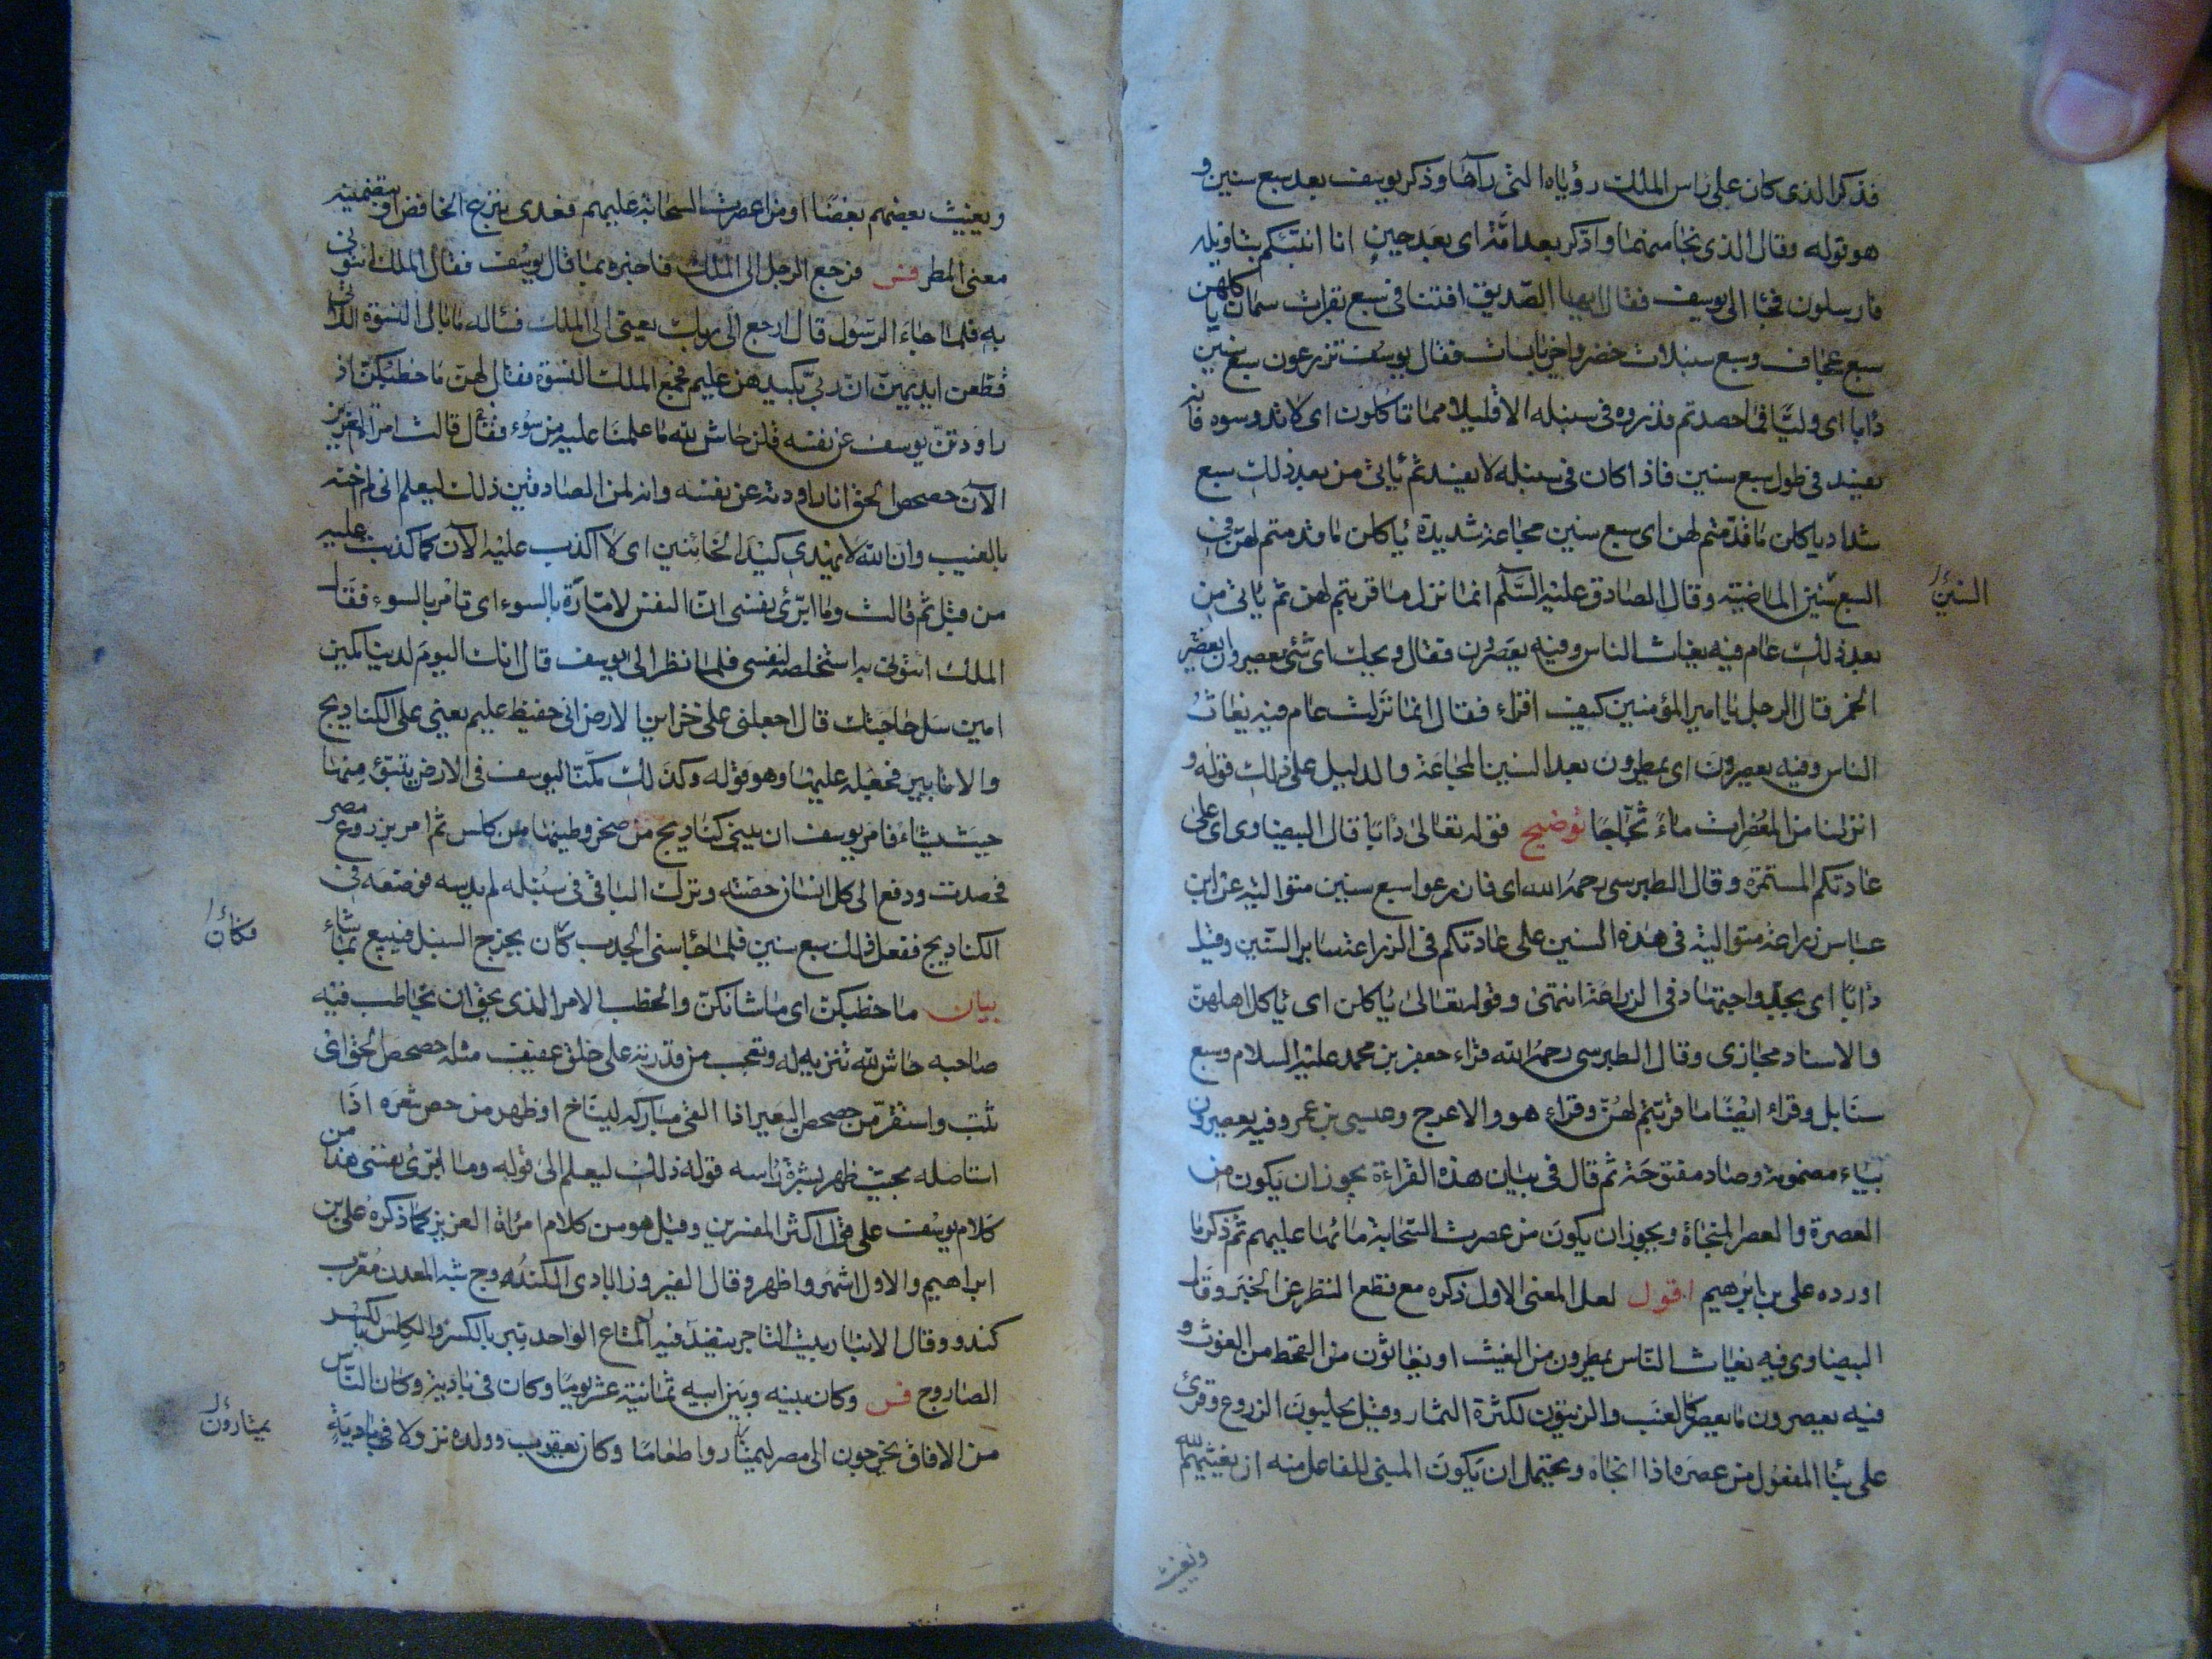 فذكر الذى كان على راس الملك رؤياه التى رآها وذكر يوسف بعد سبع سنين و
هو قوله وقال الذى نجا منهما وادّكر بعد امّة اى بعد حين انا انبئكم بتاويله
فارسلون فجاء الى يوسف فقال ايها الصّديق افتنا فى سبع بقرات سمان ياكلهن
سبع عجاف وسبع سنبلات خضر واخر يابسات فقال يوسف تزرعون سبع سنين
دابا اى وليّا فما حصدتم فذروه فى سنبله الا قليلا مما تاكلون اى لا تدوسوه فانه
يفسد فى طول سبع سنين فاذا كان فى سنبله لا يفسد ثم ياتى من بعد ذلك سبع
شداد ياكلن ما قدّمتم لهن اى سبع سنين مجاعة شديدة ياكلن ما قدمتم لهنّ فى
السبع سنين الماضية وقال الصادق عليه السّلم انما نزل ما قربتم لهن ثم ياتى من
السنين
بعد ذلك عام فيه يغاث الناس وفيه يعصرون فقال ويحك اى شئ يعصرون ايعصرون
الخمر قال الرجل يا امير المؤمنين كيف اقراء فقال انما نزلت عام فيه يغاث
الناس وفيه يعصرون اى يمطرون بعد السنين المجاعة والدليل على ذلك قوله و
انزلنا من المعصرات ماء ثجّاجا توضيح قوله تعالى دابا قال البيضاوى اى على
عادتكم المستمرّة وقال الطبرسى رحمه الله اى فازرعوا سبع سنين متوالية عن ابن
عباس زراعة متوالية فى هذه السنين على عادتكم فى الزراعة ساير السّنين وقيل
دابا اى بجد واجتهاد فى الزراعة انتهى وقوله تعالى ياكلن اى ياكل اهلهن
والاسناد مجازى وقال الطبرسى رحمه الله قراء جعفر بن محمد عليه السلام وسبع
سنابل وقراء ايضا ما قرّبتم لهنّ وقراء هو والاعرج وعيسى بن عمر وفيه يعصرون
بياء مضمومة وصاد مفتوحة ثم قال فى بيان هذه القراءة يجوز ان يكون من
العصرة والعصر المنجاة ويجوز ان يكون من عصرت السّحابة ماءها عليهم ثم ذكر ما
اورده على بن ابرهيم اقول لعل المعنى الاول ذكره مع قطع النظر عن الخبر وقال
البيضاوى فيه يغاث النّاس يمطرون من الغيث او يغاثون من القحط من الغوث و
فيه يعصرون ما يعصر كالعنب والزيتون لكثرة الثمار وقيل يحلبون الزروع وقرئ
على بناء المفعول من عصره اذا انجاه ويحتمل ان يكون المبنى للفاعل منه اى يغيثهم الله
ويغيث
ويغيث بعضهم بعضا او من اعصرت السّحابة عليهم فعدى بنزع الخافض او بتضمينه
معنى المطر فس فرجع الرجل الى الملك فاخبره بما قال يوسف فقال الملك ائتونى
به فلما جاءه الرسول قال ارجع الى ربك يعنى الى الملك فسأله ما بال النسوة اللاتى
قطّعن ايديهنّ انّ ربّى بكيدهن عليم فجمع الملك النسوة فقال لهنّ ما خطبكنّ اذ
راودتنّ يوسف عن نفسه قلن حاش لله ما علمنا عليه من سوء فقال قالت امراة العزيز
الآن حصحص الحق انا راودته عن نفسه وانه لمن الصادقين ذلك ليعلم انى لم اخنه
بالغيب وان الله لا يهدى كيد الخائنين اى لا اكذب عليه الآن كما كذبت عليه
من قبل ثم قالت وما ابرّئ نفسى انّ النفس لامّارة بالسوء اى تامر بالسوء فقال
الملك ائتونى به استخلصه لنفسى فلما نظر الى يوسف قال انك اليوم لدينا مكين
امين سل حاجتك قال اجعلنى على خزاين الارض انى حفيظ عليم يعنى على الكناديج
والانابير فجعله عليها وهو قوله وكذلك مكّنا ليوسف فى الارض يتبوّء منها
حيث يشاء فامر يوسف ان يبنى كناديج من صخر وطينها من كلس ثم امر بزروع مصر
فحصدت ودفع الى كل انسان حصّته وترك الباقى فى سنبله لم يدسه فوضعه فى
الكناديج ففعل ذلك سبع سنين فلما جاء سنى الجدب كان يخرج السنبل فيبيع بما شاء
فكان
بيان ما خطبكن اى ما شانكنّ والخطب الامر الذى يحق ان يخاطب فيه
صاحبه حاش لله تنزيه له وتعجب من قدرته على خلق عفيف مثله حصحص الحق اى
ثبت واستقرّ من حصحص البعير اذا القى مباركه ليناخ او ظهر من حص شعره اذا
استاصله بحيث ظهر بشرة راسه قوله ذلك ليعلم الى قوله وما ابرّئ نفسى هذا من
كلام يوسف على قول اكثر المفسرين وقيل هو من كلام امراة العزيز كما ذكره على بن
ابراهيم والاول اشهر واظهر وقال الفيروزابادى الكندوج شبه المعدن معرّب
كندو وقال الانبار بيت التاجر ينضد فيه المتاع الواحد نبر بالكسر والكلس بالكسر
الصاروج فس وكان بينه وبين ابيه ثمانية عشر يوما وكان فى بادية وكان النّاس
من الافاق يخرجون الى مصر ليمتاروا طعاما وكان يعقوب وولده نزولا فى بادية
يمتارون